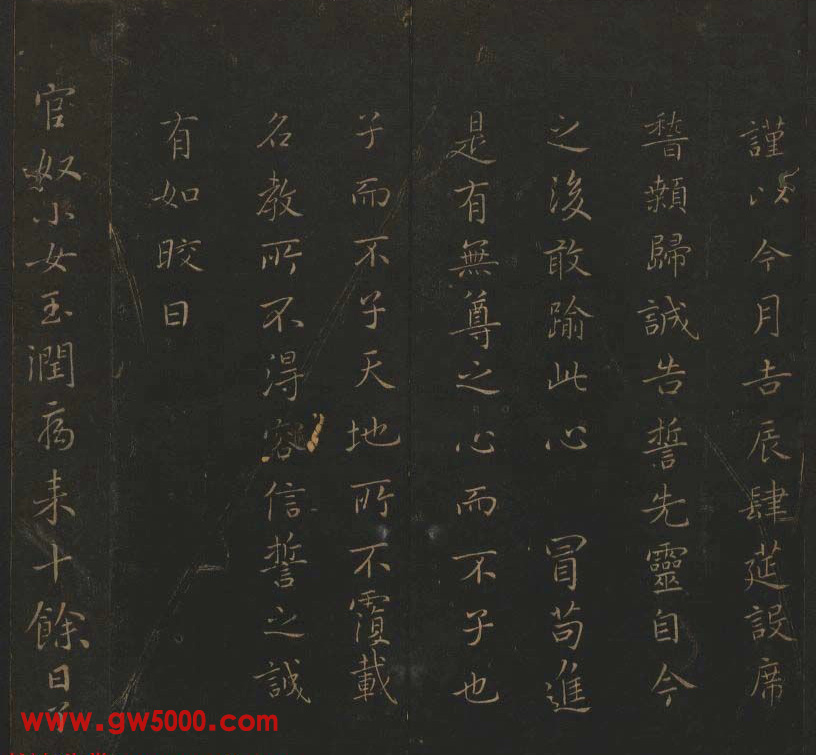 謹以今月吉辰肆莚設席
稽顙歸誠告誓先靈自今
之後敢踰此心冒苟進
是有無尊之心而不子也
子而不子天地所不覆載
名教所不得容信誓之誠
有如皎日
官奴小女玉潤病来十餘日了
www.gw5000.com